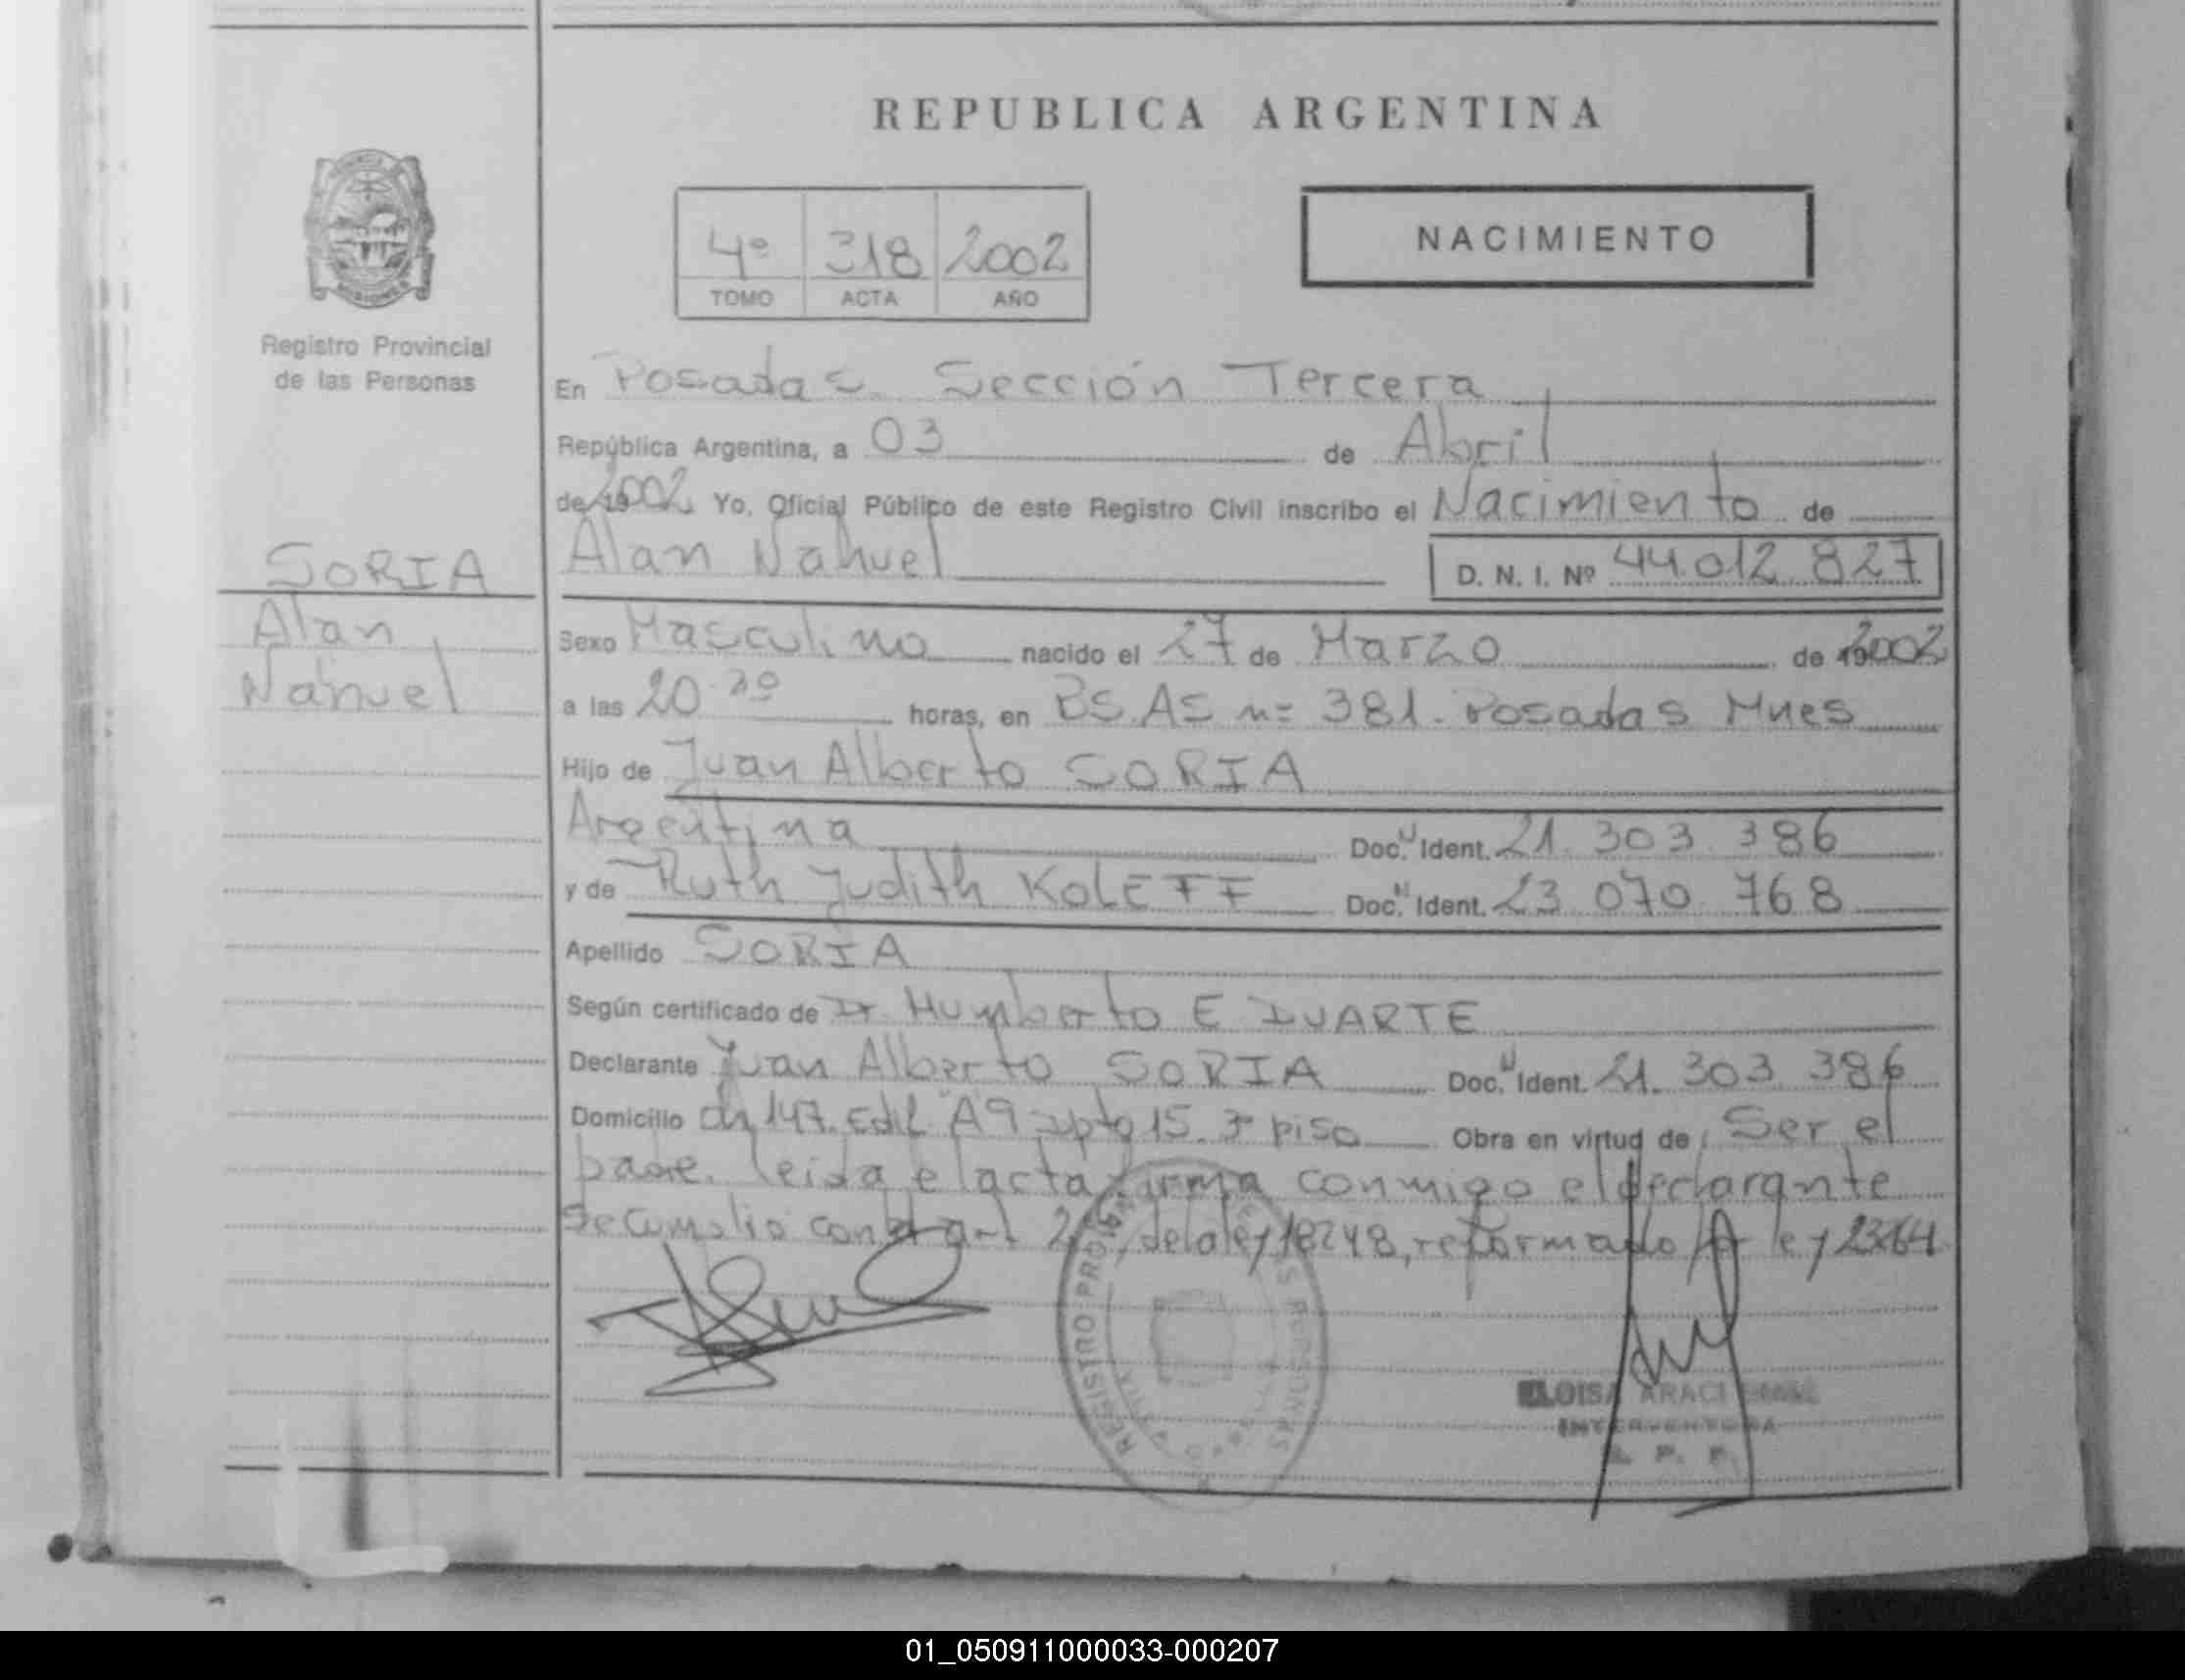 REPUBLICA ARGENTINA
4º 318 2002
TOMO ACTA AÑO
NACIMIENTO
MISIONES
Registro Provincial
de las Personas
En Posadas Sección Tercera
República Argentina, a 03 de Abril
de 2002 Yo, Oficial Público de este Registro Civil inscribo el Nacimiento de
SORIA
Alan
Nahuel
Alan Nahuel D. N. I. Nº 44.012 827
Sexo Masculino nacido el 27 de Marzo de 2002
a las 20 horas, en BS.AS nº 381. Posadas Mnes
Hijo de Juan Alberto SORIA
Argentina Doc. Ident. 21. 303 386
y de Ruth Judith KOLEFF Doc. Ident. 23 070 768
Apellido SORIA
Según certificado de Dr. Humberto E DUARTE
Declarante Juan Alberto SORIA Doc. Ident. 21. 303 386
Domicilio Ch 147. Edif. A9 apto 15. 3º piso Obra en virtud de Ser el
padre. leida el acta firma conmigo el declarante
Se cumplio con el art 2 de la ley 18248, reformado ley
REGISTRO PROV PERSONAS
ELOISA
INTERVENTORA
R. P. P.
01_050911000033-000207